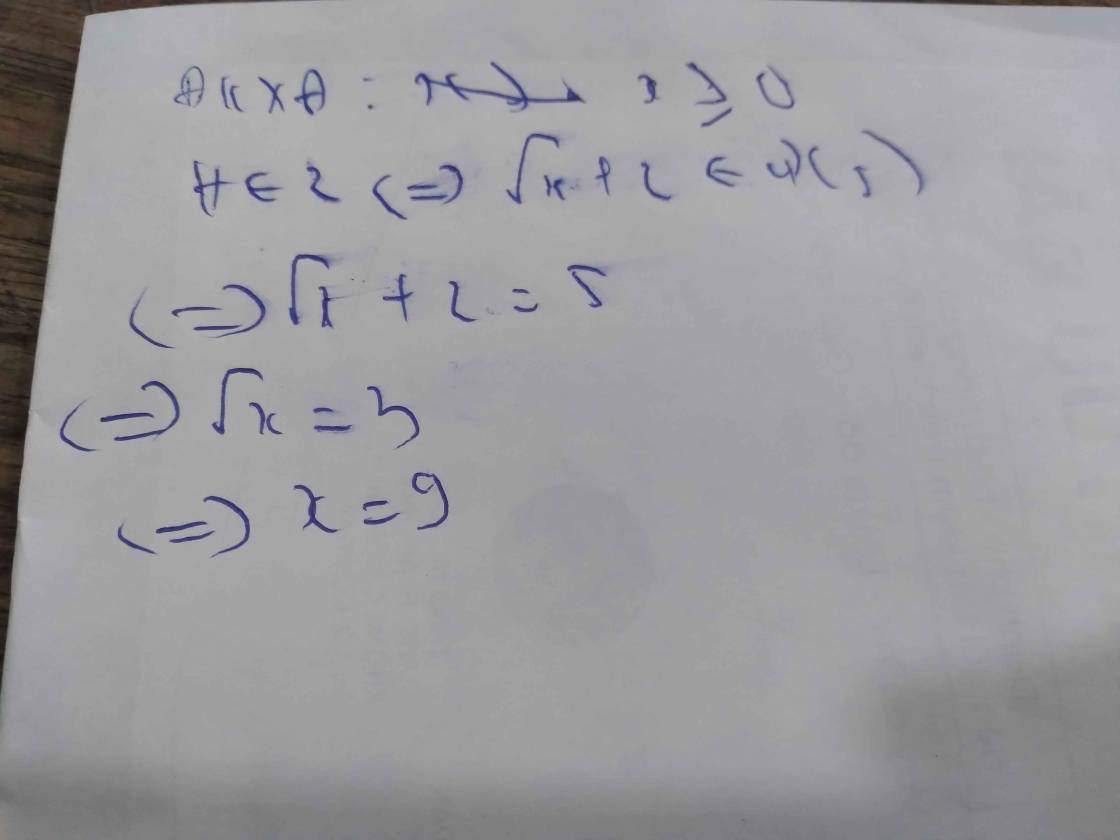 ĐKXĐ: x ≥ 0
H ∈ Z (=) √x + 2 ∈ Ư(5)
(=) √x + 2 = 5
(=) √x = 3
(=) x = 9